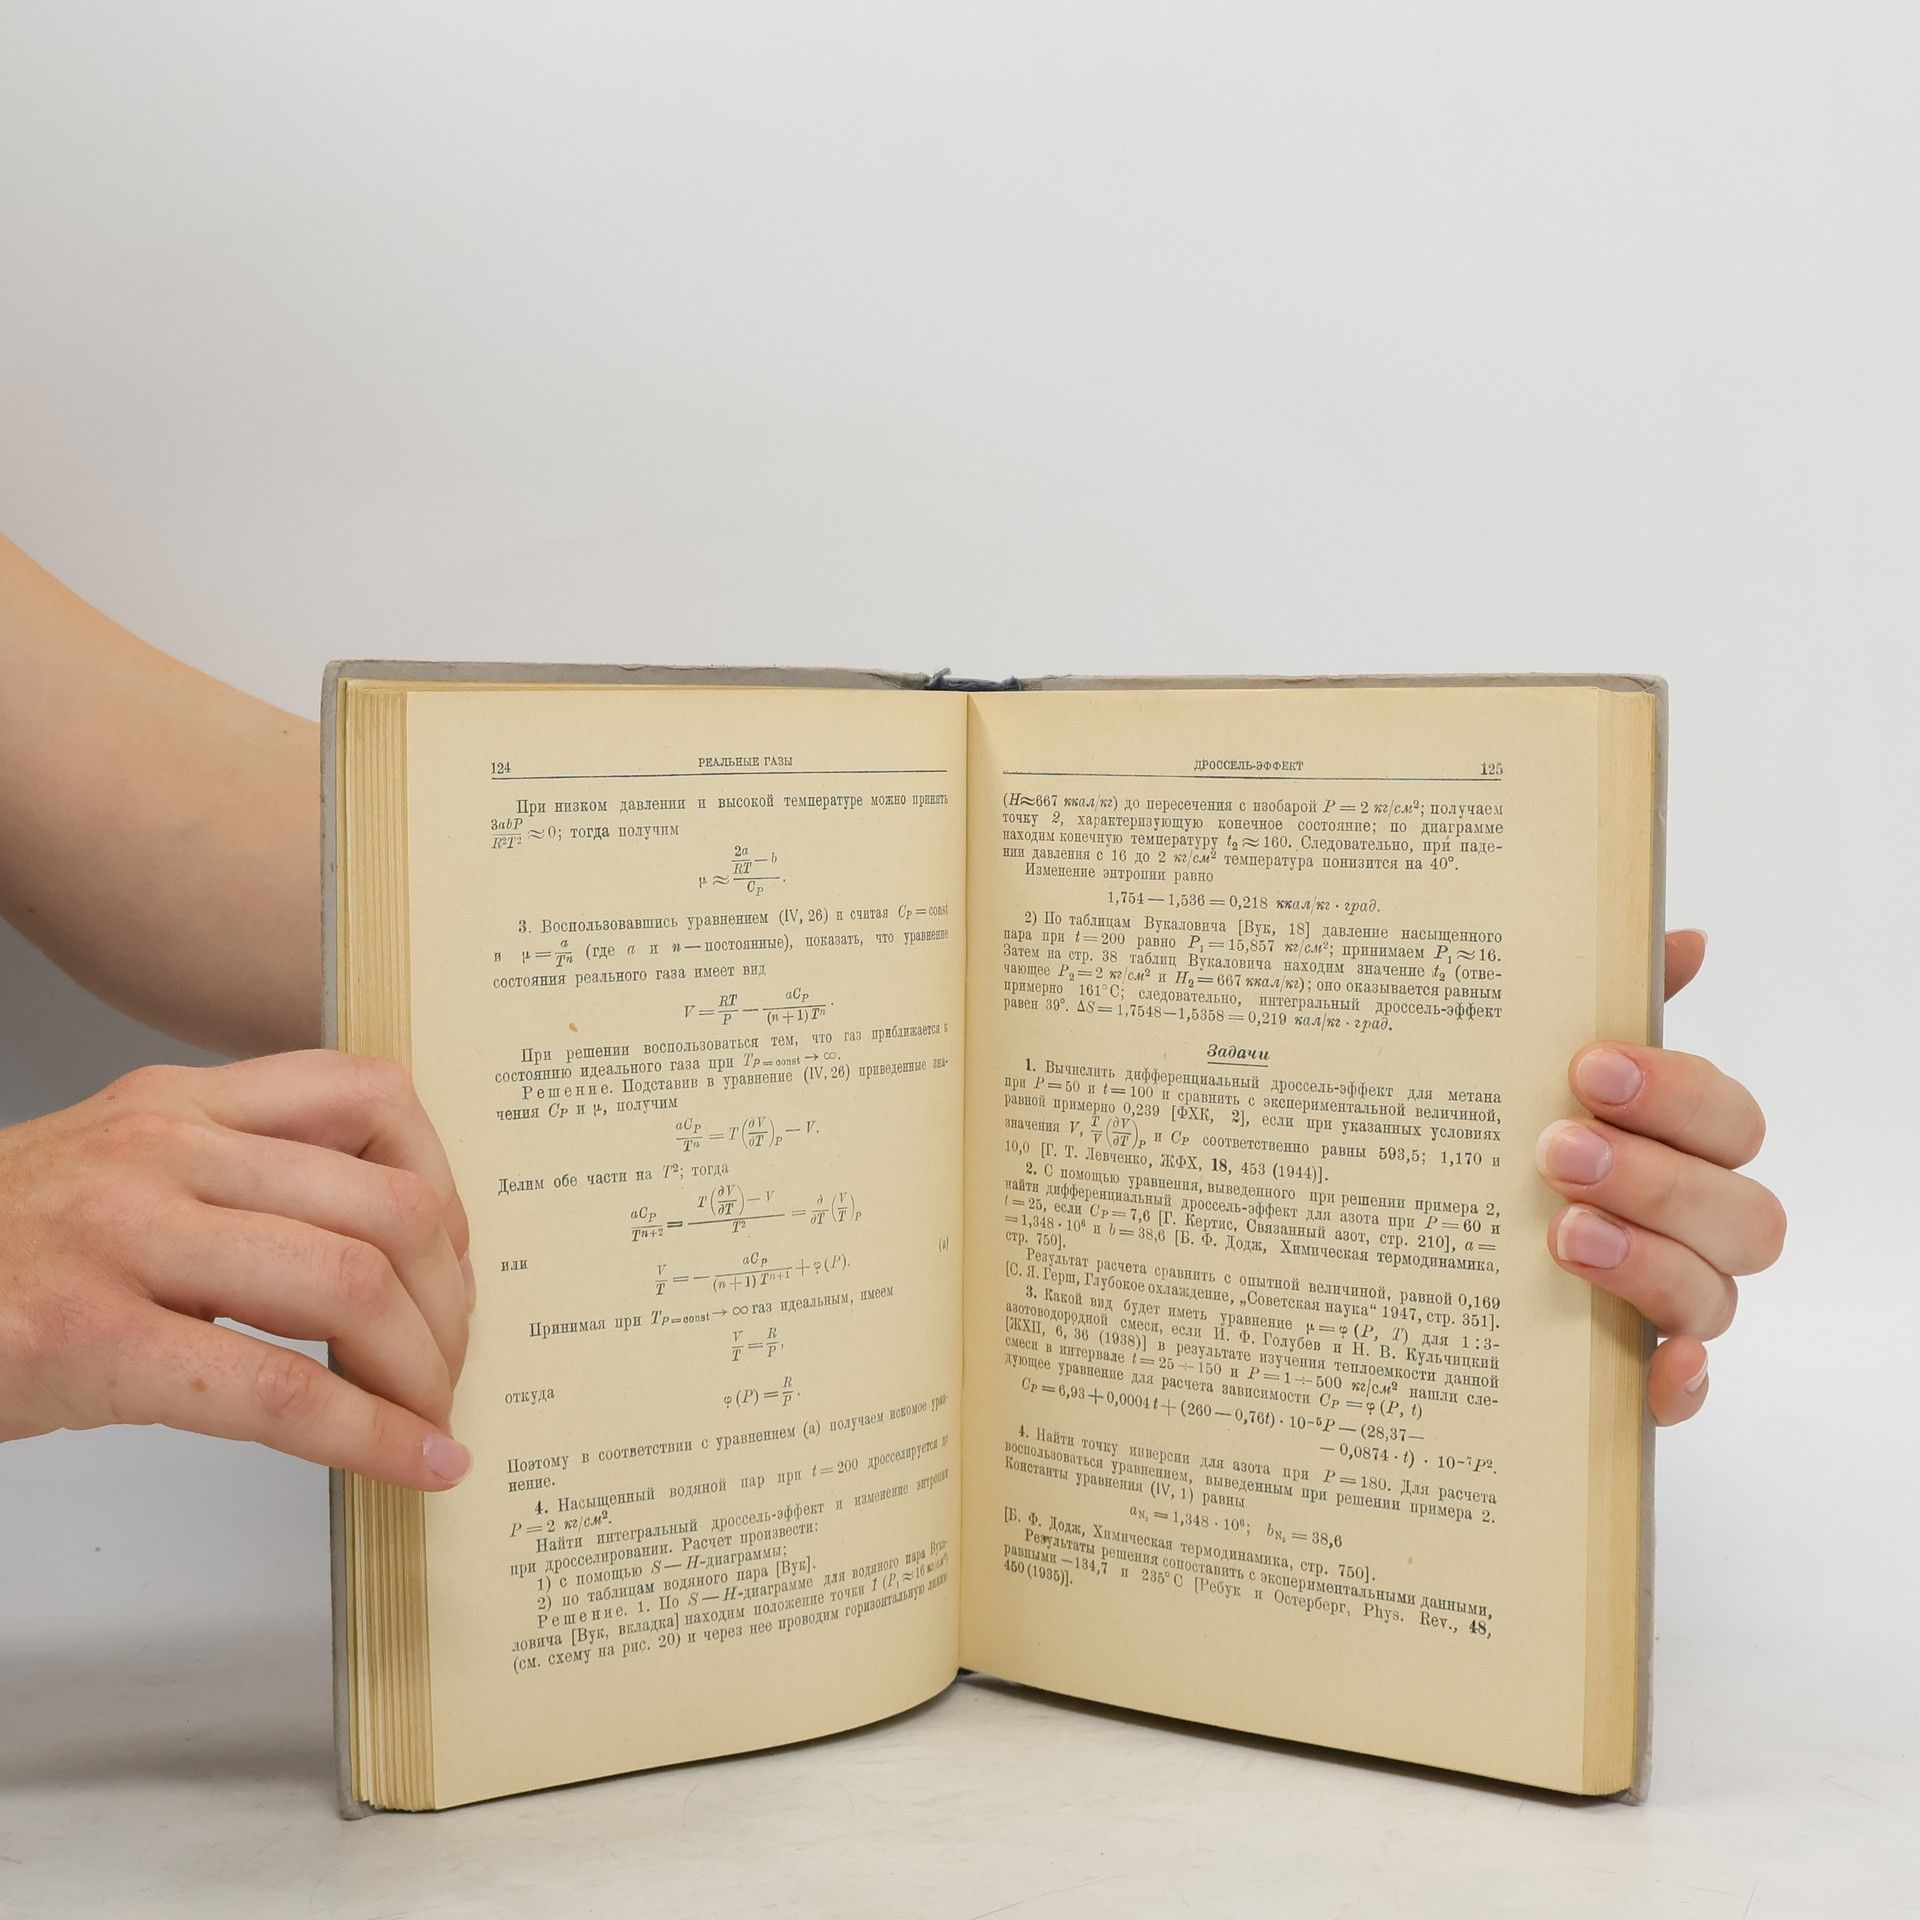 124 РЕАЛЬНЫЕ ГАЗЫ
При низком давлении и высокой температуре можно принять
3abP/R²T² ≈ 0; тогда получим
μ ≈ (2a/RT — b)/C_P.
3. Воспользовавшись уравнением (IV, 26) и считая C_P = const
и μ = a/Tⁿ (где a и n — постоянные), показать, что уравнение
состояния реального газа имеет вид
V = RT/P — aC_P/((n + 1) Tⁿ).
При решении воспользоваться тем, что газ приближается к
состоянию идеального газа при T_{P = const} → ∞.
Решение. Подставив в уравнение (IV, 26) приведенные зна-
чения C_P и μ, получим
aC_P/Tⁿ = T (∂V/∂T)_P — V.
Делим обе части на T²; тогда
aC_P/Tⁿ⁺² = (T (∂V/∂T) — V)/T² = ∂/∂T (V/T)_P
или (а)
V/T = — aC_P/((n + 1) Tⁿ⁺¹) + φ (P).
Принимая при T_{P = const} → ∞ газ идеальным, имеем
V/T = R/P,
откуда φ (P) = R/P.
Поэтому в соответствии с уравнением (а) получаем искомое урав-
нение.
4. Насыщенный водяной пар при t = 200 дросселируется до
P = 2 кг/см².
Найти интегральный дроссель-эффект и изменение энтропии
при дросселировании. Расчет произвести:
1) с помощью S — H-диаграммы;
2) по таблицам водяного пара [Вук].
Решение. 1. По S — H-диаграмме для водяного пара Вука-
ловича [Вук, вкладка] находим положение точки 1 (P₁ ≈ 16 кг/см²)
(см. схему на рис. 20) и через нее проводим горизонтальную линию
ДРОССЕЛЬ-ЭФФЕКТ 125
(H ≈ 667 ккал/кг) до пересечения с изобарой P = 2 кг/см²; получаем
точку 2, характеризующую конечное состояние; по диаграмме
находим конечную температуру t₂ ≈ 160. Следовательно, при паде-
нии давления с 16 до 2 кг/см² температура понизится на 40°.
Изменение энтропии равно
1,754 — 1,536 = 0,218 ккал/кг · град.
2) По таблицам Вукаловича [Вук, 18] давление насыщенного
пара при t = 200 равно P₁ = 15,857 кг/см²; принимаем P₁ ≈ 16.
Затем на стр. 38 таблиц Вукаловича находим значение t₂ (отве-
чающее P₂ = 2 кг/см² и H₂ = 667 ккал/кг); оно оказывается равным
примерно 161° C; следовательно, интегральный дроссель-эффект
равен 39°. ΔS = 1,7548 — 1,5358 = 0,219 кал/кг · град.
Задачи
1. Вычислить дифференциальный дроссель-эффект для метана
при P = 50 и t = 100 и сравнить с экспериментальной величиной,
равной примерно 0,239 [ФХК, 2], если при указанных условиях
значения V, T/V (∂V/∂T)_P и C_P соответственно равны 593,5; 1,170 и
10,0 [Г. Т. Левченко, ЖФХ, 18, 453 (1944)].
2. С помощью уравнения, выведенного при решении примера 2,
найти дифференциальный дроссель-эффект для азота при P = 60 и
t = 25, если C_P = 7,6 [Г. Кертис, Связанный азот, стр. 210], a =
= 1,348 · 10⁶ и b = 38,6 [Б. Ф. Додж, Химическая термодинамика,
стр. 750].
Результат расчета сравнить с опытной величиной, равной 0,169
[С. Я. Герш, Глубокое охлаждение, „Советская наука“ 1947, стр. 351].
3. Какой вид будет иметь уравнение μ = φ (P, T) для 1 : 3-
азотоводородной смеси, если И. Ф. Голубев и Н. В. Кульчицкий
[ЖХП, 6, 36 (1938)] в результате изучения теплоемкости данной
смеси в интервале t = 25 ÷ 150 и P = 1 ÷ 500 кг/см² нашли сле-
дующее уравнение для расчета зависимости C_P = φ (P, t)
C_P = 6,93 + 0,0004 t + (260 — 0,76t) · 10⁻⁵P — (28,37 —
— 0,0874 · t) · 10⁻⁷P².
4. Найти точку инверсии для азота при P = 180. Для расчета
воспользоваться уравнением, выведенным при решении примера 2.
Константы уравнения (IV, 1) равны
a_{N₂} = 1,348 · 10⁶; b_{N₂} = 38,6
[Б. Ф. Додж, Химическая термодинамика, стр. 750].
Результаты решения сопоставить с экспериментальными данными,
равными —134,7 и 235° C [Ребук и Остерберг, Phys. Rev., 48,
450 (1935)].